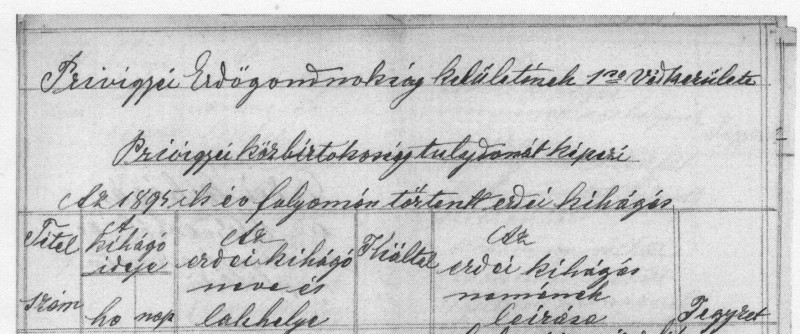 Privigyei Erdőgondnokság kerületének 1ső Védkerülete
Privigyei közbirtokosság tulajdonát képezi
Az 1895 ik év folyamán történt erdei kihágás
Titel szám
A kihágó ideje
ho nap
Az erdei kihágó neve és lakhelye
Kiáltel
Az erdei kihágás nemének leírása
Jegyzet